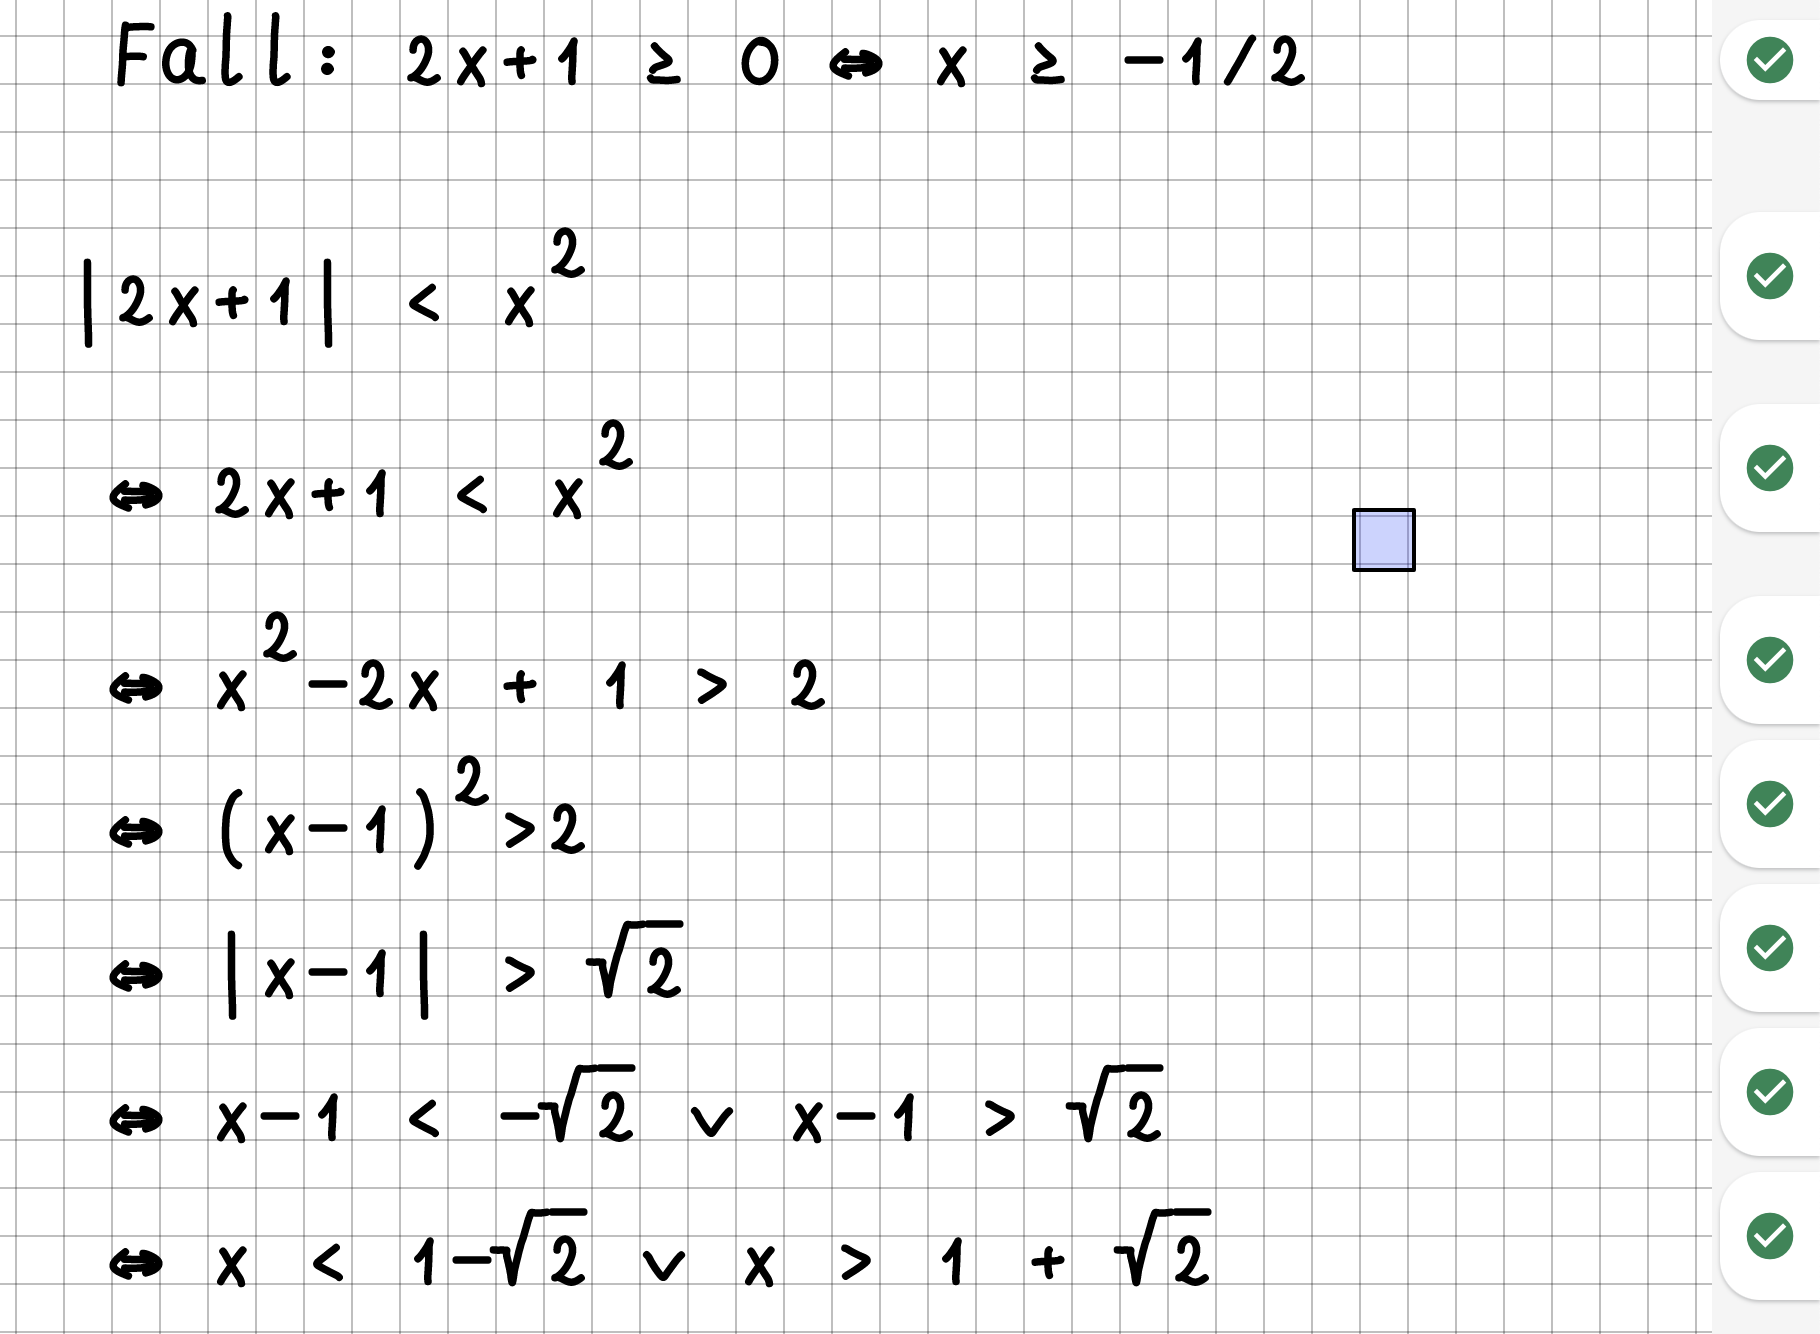 Fall: 2x+1 ≥ 0 ⇔ x ≥ -1/2
|2x+1| < x²
⇔ 2x+1 < x²
⇔ x²-2x + 1 > 2
⇔ (x-1)²>2
⇔ |x-1| > √2
⇔ x-1 < -√2 ∨ x-1 > √2
⇔ x < 1-√2 ∨ x > 1 + √2